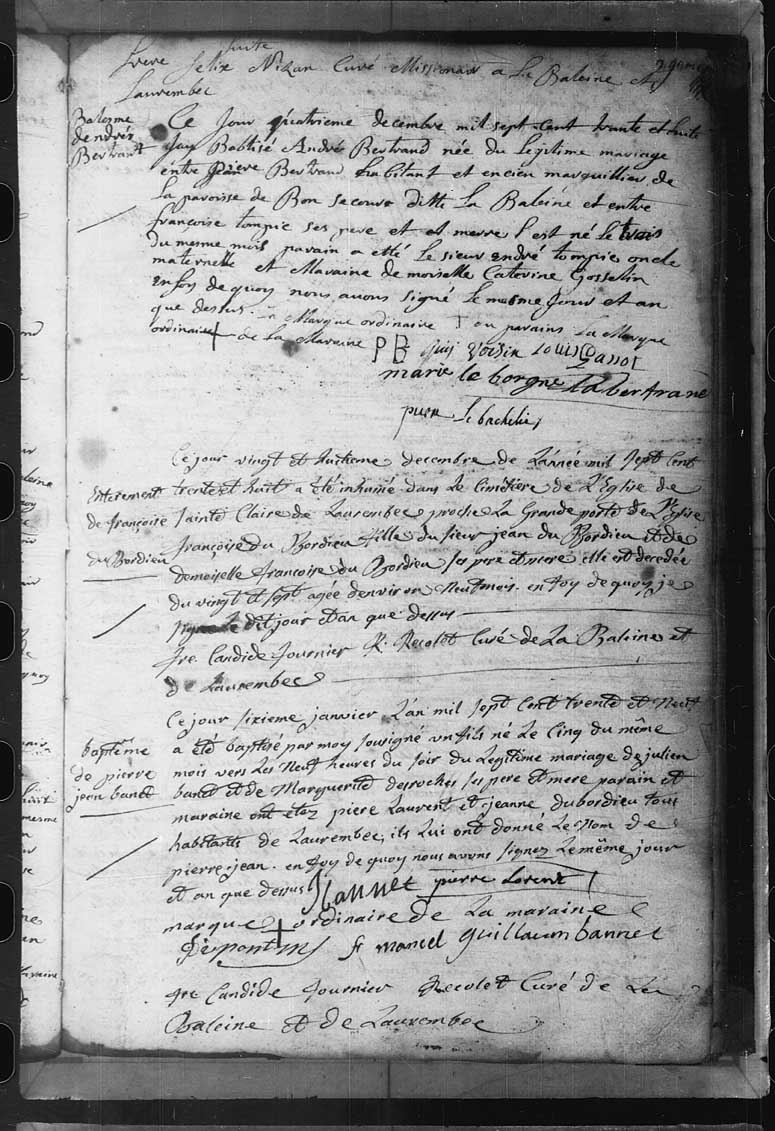 suite
frere felix Nizan Curé Missionair a La Baleine et
Laurembec
Batesme
de andrés
Bertrant
Ce Jour quatrieme decembre mil sept cent trante et huite
Jay Baptisé André Bertrand née du legitime mariage
entre piere Bertrand habitant et encien marquillier de
La paroise de Bon secours ditte La Baleine et entre
françoise tompic ses pere et et merre l'est né le trois
Du mesme mois parain a etté Le sieur andré tompic oncle
maternelle et Maraine demoiselle Caterine Gosselin
En foy de quoy nous auons signé Le mesme Jour et an
que dessus La Marque ordinaire + du parains La Marque
ordinaire + de La Maraine PB Voisin Louis Gassot
marie le borgne La bertrane
piere Le bachelie
Enterement
de françoise
du Bordieu
Ce jour vingt et huitieme decembre de L'année mil sept cent
trente et huit a été inhumée dans Le Cimétière de L'Eglise de
Sainte Claire de Laurembec proche La Grande porte de L'Eglise
françoise du Bordieu fille du sieur jean du Bordieu et de
demoiselle françoise du Bordieu ses pere et mere elle est decedée
du vingt et sept agée d'environ Neuf mois. en foy de quoy je
signe Le dit jour et an que dessus
fre. Candide fournier R. Recolet Curé de La Baleine et
de Laurembec
baptême
de pierre
jean banet
Ce jour sixieme janvier L'an mil sept Cent trente et Neuf
a été baptisé par moy sousigné un fils né Le Cinq du même
mois vers Les Neuf heures du soir du Legitime mariage de julien
banet et de Marguerite desroches ses pere et mere parain et
maraine ont etez piere Laurent et jeanne dubordieu tous
habitants de Laurembec, ils Lui ont donné Le Nom de
pierre jean. en foy de quoy nous avons signez Le même jour
et an que dessus J bannet pierre Lorent
marque + ordinaire de La maraine
Depontin f mancel guillaum bannet
fre Candide fournier Recolet Curé de La
Baleine et de Laurembec